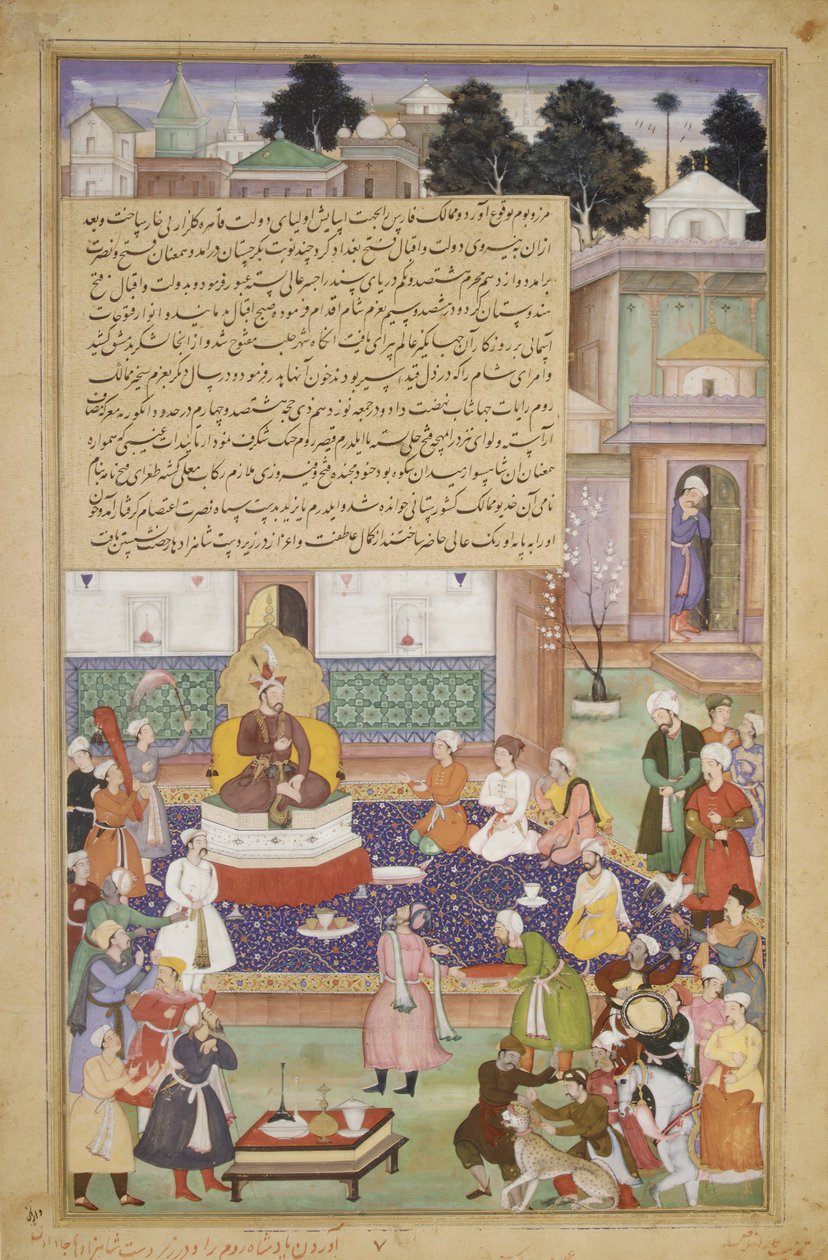 مرز و بوم بوقوع آورد و ممالک فارس را بجهت آسایش اولیای دولت قاهره گلزار بی خار ساخت و بعد
ازان به نیروی دولت و اقبال فتح بغداد کرد چند نوبت بگرجستان درآمد و همعنان فتح و نصرت
برآمد دوازدهم محرم هشتصد و یکم دریای سند را جسر عالی بسته عبور فرمود و بدولت و اقبال فتح
هندوستان کرد و در هشتصد و سیم بعزم شام اقدام فرموده صبح اقبال دمانید و انوار فتوحات
آسمانی بر روزگار آن جهانگیر عالم پیرای تافت آنگاه شهر حلب مفتوح شد و از آنجا لشکر بدمشق کشید
و امرای شام را که در ذل قید اسیر بودند خون آنها هدر فرمود و در سال دیگر بعزم تسخیر ممالک
روم رایات جهانتاب نهضت داد و در جمعه نوزدهم ذی حجه هشتصد و چهارم در حدود انکوریه معرکه مصاف
آراسته و لوای فتح بسته با ایلدرم قیصر روم جنک شگرف نمود از تائیدات غیبی که همواره
همعنان آن شاهسوار میدان شکوه بود جنود مجنده فتح و فیروزی ملازم رکاب معلی گشته طغرای فتح نامه بنام
نامی آن خدیو ممالک کشورستانی خوانده شد و ایلدرم بایزید بدست سپاه نصرت اعتصام گرفتار آمد و چون
او را به پایه اورنگ عالی حاضر ساختند از کمال عاطفت و اعزاز در زیر دست شاهزادها رخصت نشستن یافت
آوردن پادشاه روم را و در زیر دست شاهزادها جا دادن
۷